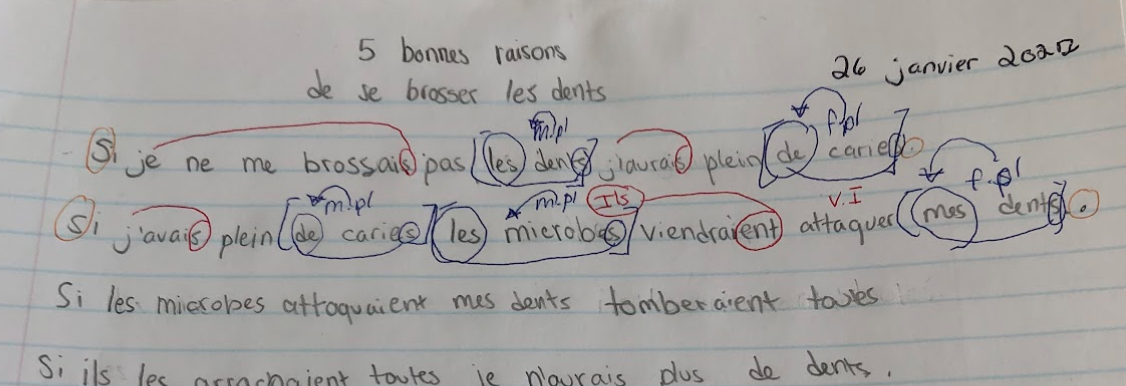 5 bonnes raisons
de se brosser les dents
26 janvier 2022
m.pl f.pl
Si je ne me brossais pas les dents j'aurais plein de caries.
m.pl m.pl Ils V.I f.pl
Si j'avais plein de caries les microbes viendraient attaquer mes dents.
Si les microbes attaquaient mes dents tomberaient toutes
Si ils les arrachaient toutes je n'aurais plus de dents.